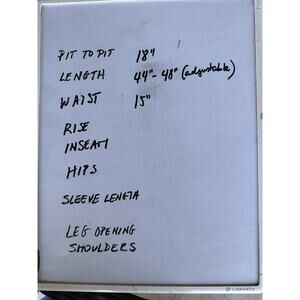 PIT TO PIT 18"
LENGTH 44"- 48" (adjustable)
WAIST 15"
RISE
INSEAM
HIPS
SLEEVE LENGTH
LEG OPENING
SHOULDERS